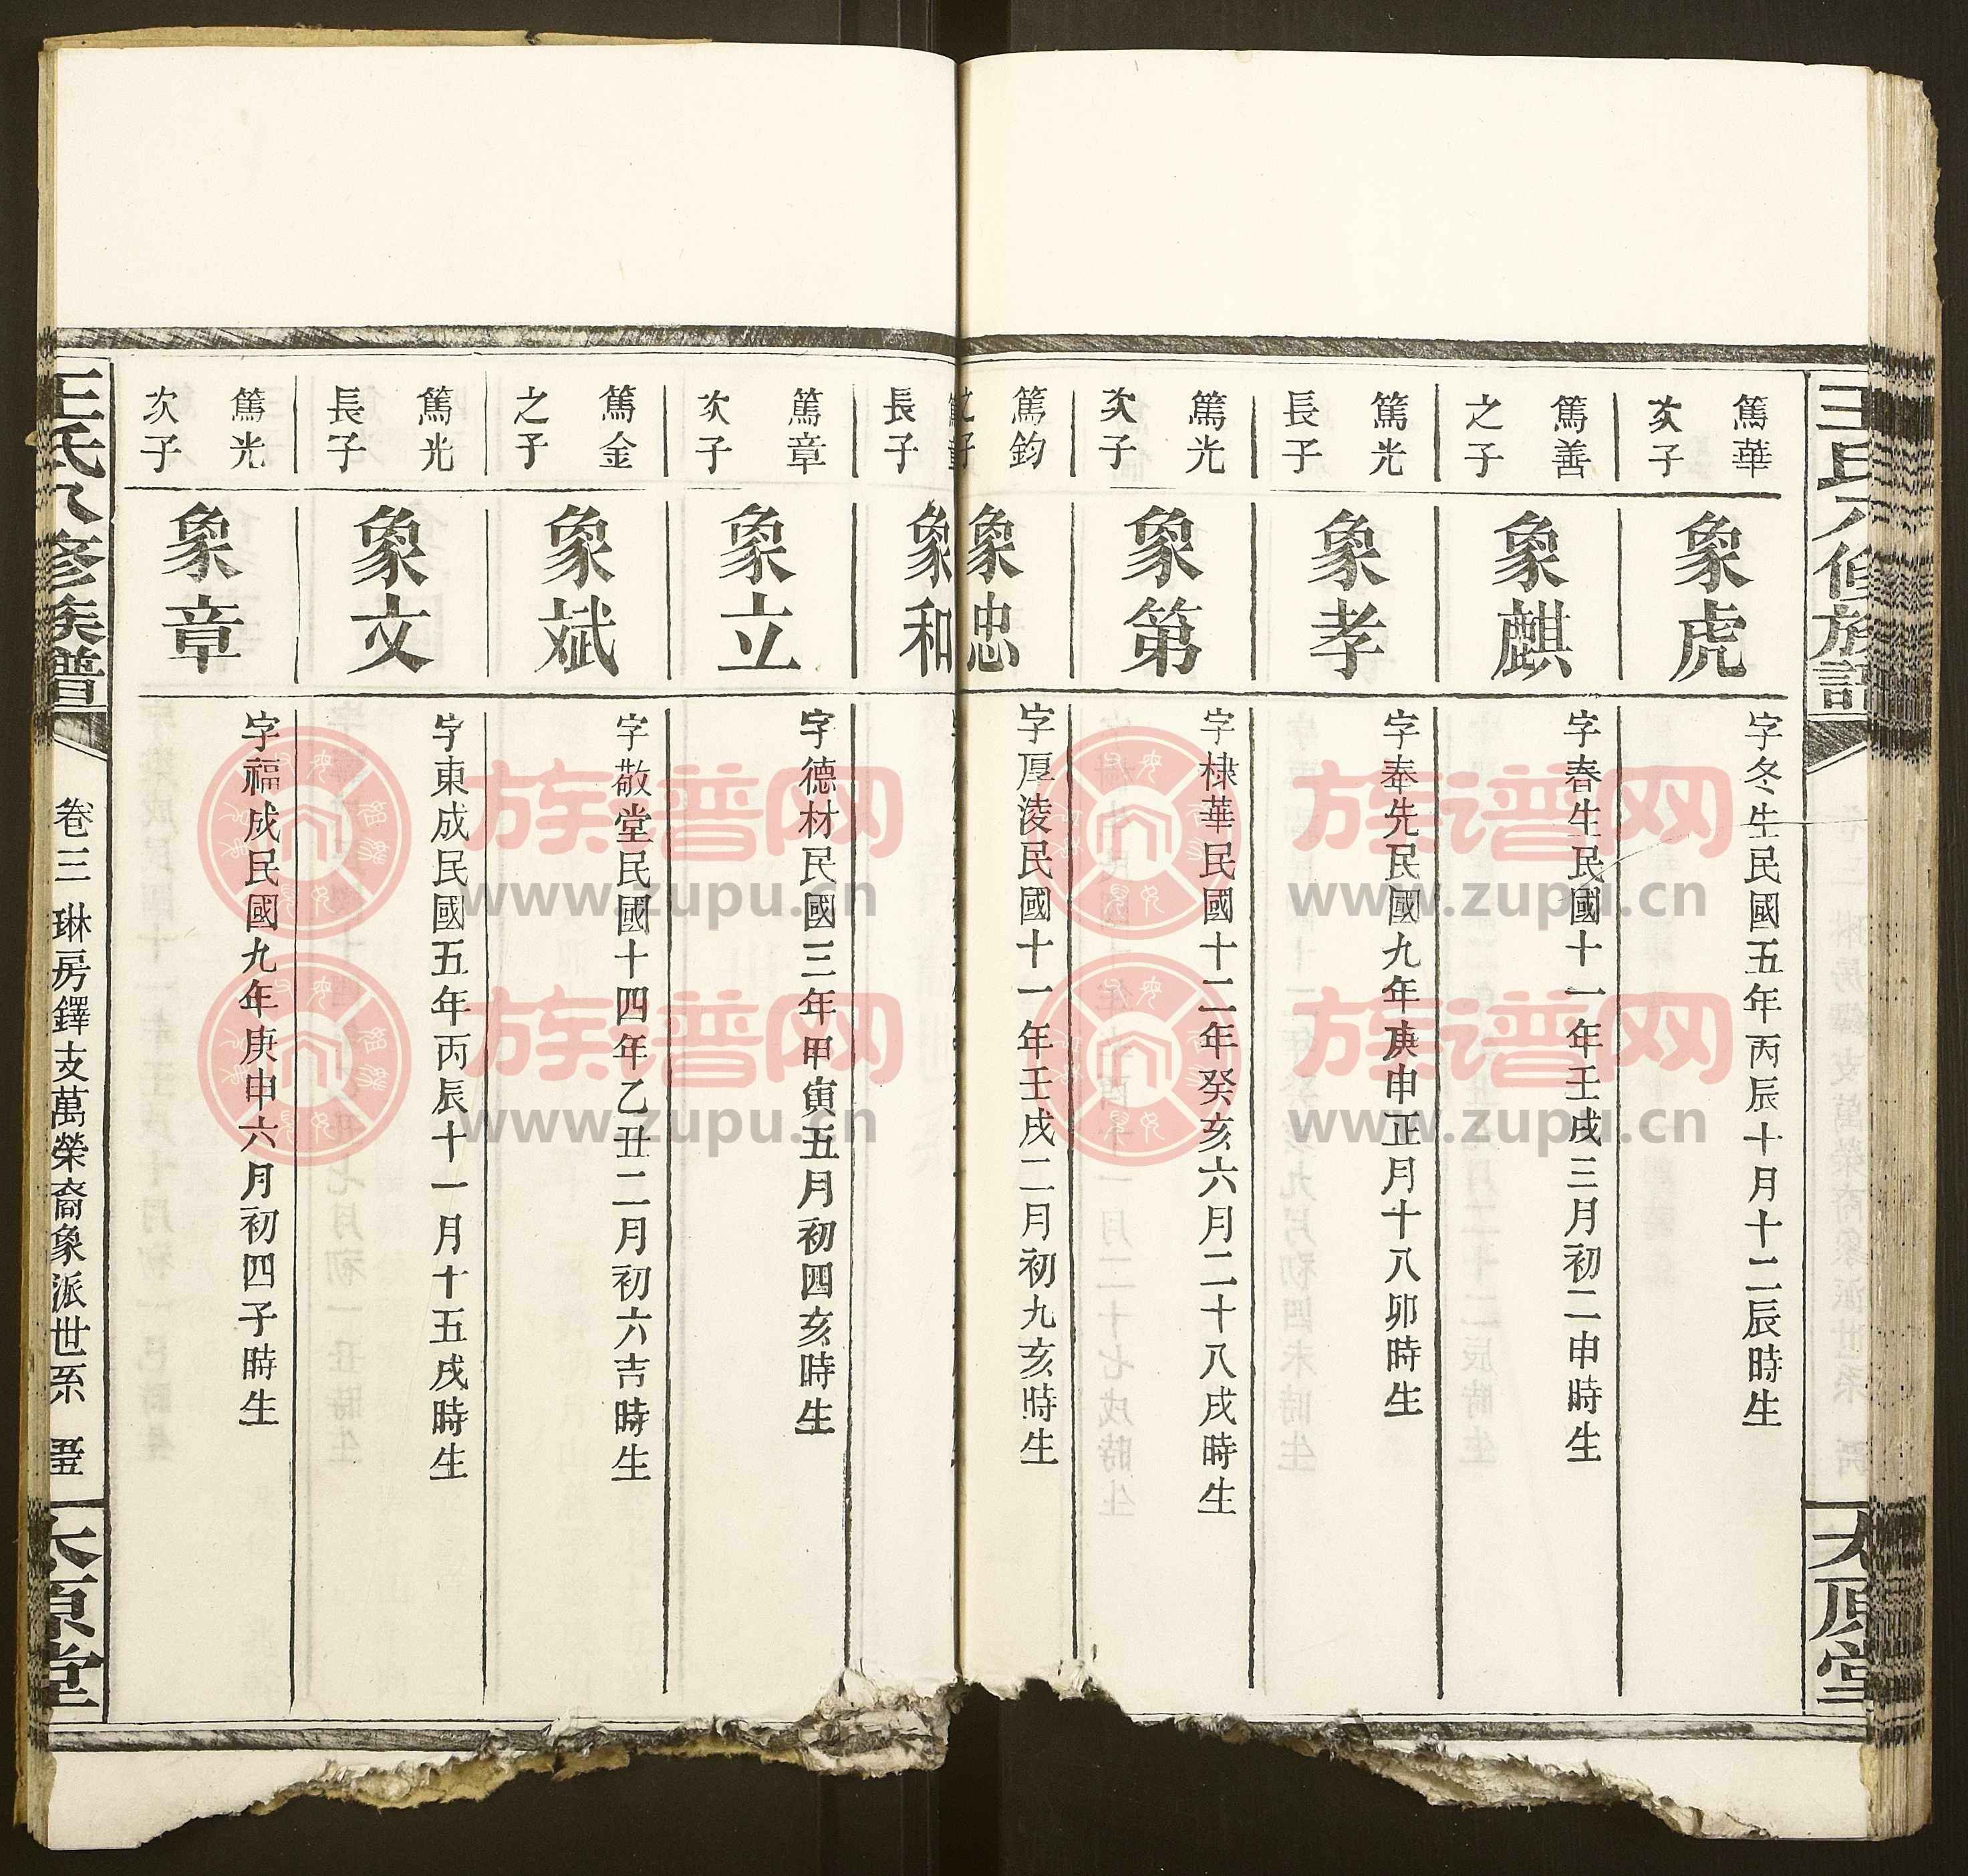 篤華
次子
象虎
字冬生民國五年丙辰十月十二辰時生
篤善
之子
象麒
字春生民國十一年壬戌三月初二申時生
篤光
長子
象孝
字奉先民國九年庚申正月十八卯時生
篤光
次子
象第
字棣華民國十二年癸亥六月二十八戌時生
篤鈞
之子
象忠
字厚淩民國十一年壬戌二月初九亥時生
長子
象和
篤章
次子
象立
字德材民國三年甲寅五月初四亥時生
篤金
之子
象斌
字敬堂民國十四年乙丑二月初六吉時生
篤光
長子
象文
字東成民國五年丙辰十一月十五戌時生
篤光
次子
象章
字福成民國九年庚申六月初四子時生
王氏八修族譜
卷三 琳房鐸支萬榮裔象派世系
太原堂
族谱网
www.zupu.cn
族谱网
www.zupu.cn
族谱网
www.zupu.cn
族谱网
www.zupu.cn